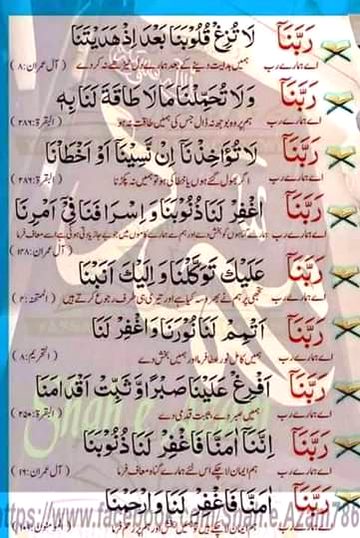 رَبَّنَا لَا تُزِغْ قُلُوْبَنَا بَعْدَ اِذْ هَدَيْتَنَا
اے ہمارے رب ہمیں ہدایت دینے کے بعد ہمارے دل ٹیڑھے نہ کر دے (آل عمران:۸)
رَبَّنَا وَلَا تُحَمِّلْنَا مَا لَا طَاقَةَ لَنَا بِهٖ
اے ہمارے رب ہم پر وہ بوجھ نہ ڈال جس کی ہمیں طاقت نہ ہو (البقرة:۲۸۶)
رَبَّنَا لَا تُؤَاخِذْنَا اِنْ نَّسِيْنَا اَوْ اَخْطَأْنَا
اے ہمارے رب اگر بھول گئے ہوں یا خطا کی ہو تو ہمیں نہ پکڑنا (البقرة:۲۸۶)
رَبَّنَا اغْفِرْ لَنَا ذُنُوْبَنَا وَاِسْرَافَنَا فِيْ اَمْرِنَا
اے ہمارے رب ہمارے گناہوں کو بخش دے اور ہم سے ہمارے کاموں میں جو بے جا زیادتی ہوئی ہے اسے معاف فرما
(آل عمران:۱۴۸)
رَبَّنَا عَلَيْكَ تَوَكَّلْنَا وَاِلَيْكَ اَنَبْنَا
اے ہمارے رب تجھی پر ہم نے بھروسہ کیا ہے اور تیری ہی طرف رجوع کرتے ہیں (الممتحنة:۴)
رَبَّنَا اَتْمِمْ لَنَا نُوْرَنَا وَاغْفِرْ لَنَا
اے ہمارے رب ہمیں کامل نور عطا فرما اور ہمیں بخش دے (التحريم:۸)
رَبَّنَا اَفْرِغْ عَلَيْنَا صَبْرًا وَّثَبِّتْ اَقْدَامَنَا
اے ہمارے رب ہمیں صبر دے، ثابت قدمی دے (البقرة:۲۵۰)
رَبَّنَا اِنَّنَا اٰمَنَّا فَاغْفِرْ لَنَا ذُنُوْبَنَا
اے ہمارے رب ہم ایمان لا چکے اس لئے ہمارے گناہ معاف فرما (آل عمران:۱۶)
رَبَّنَا اٰمَنَّا فَاغْفِرْ لَنَا وَارْحَمْنَا
https://www.facebook.com/Shan.e.Azam786